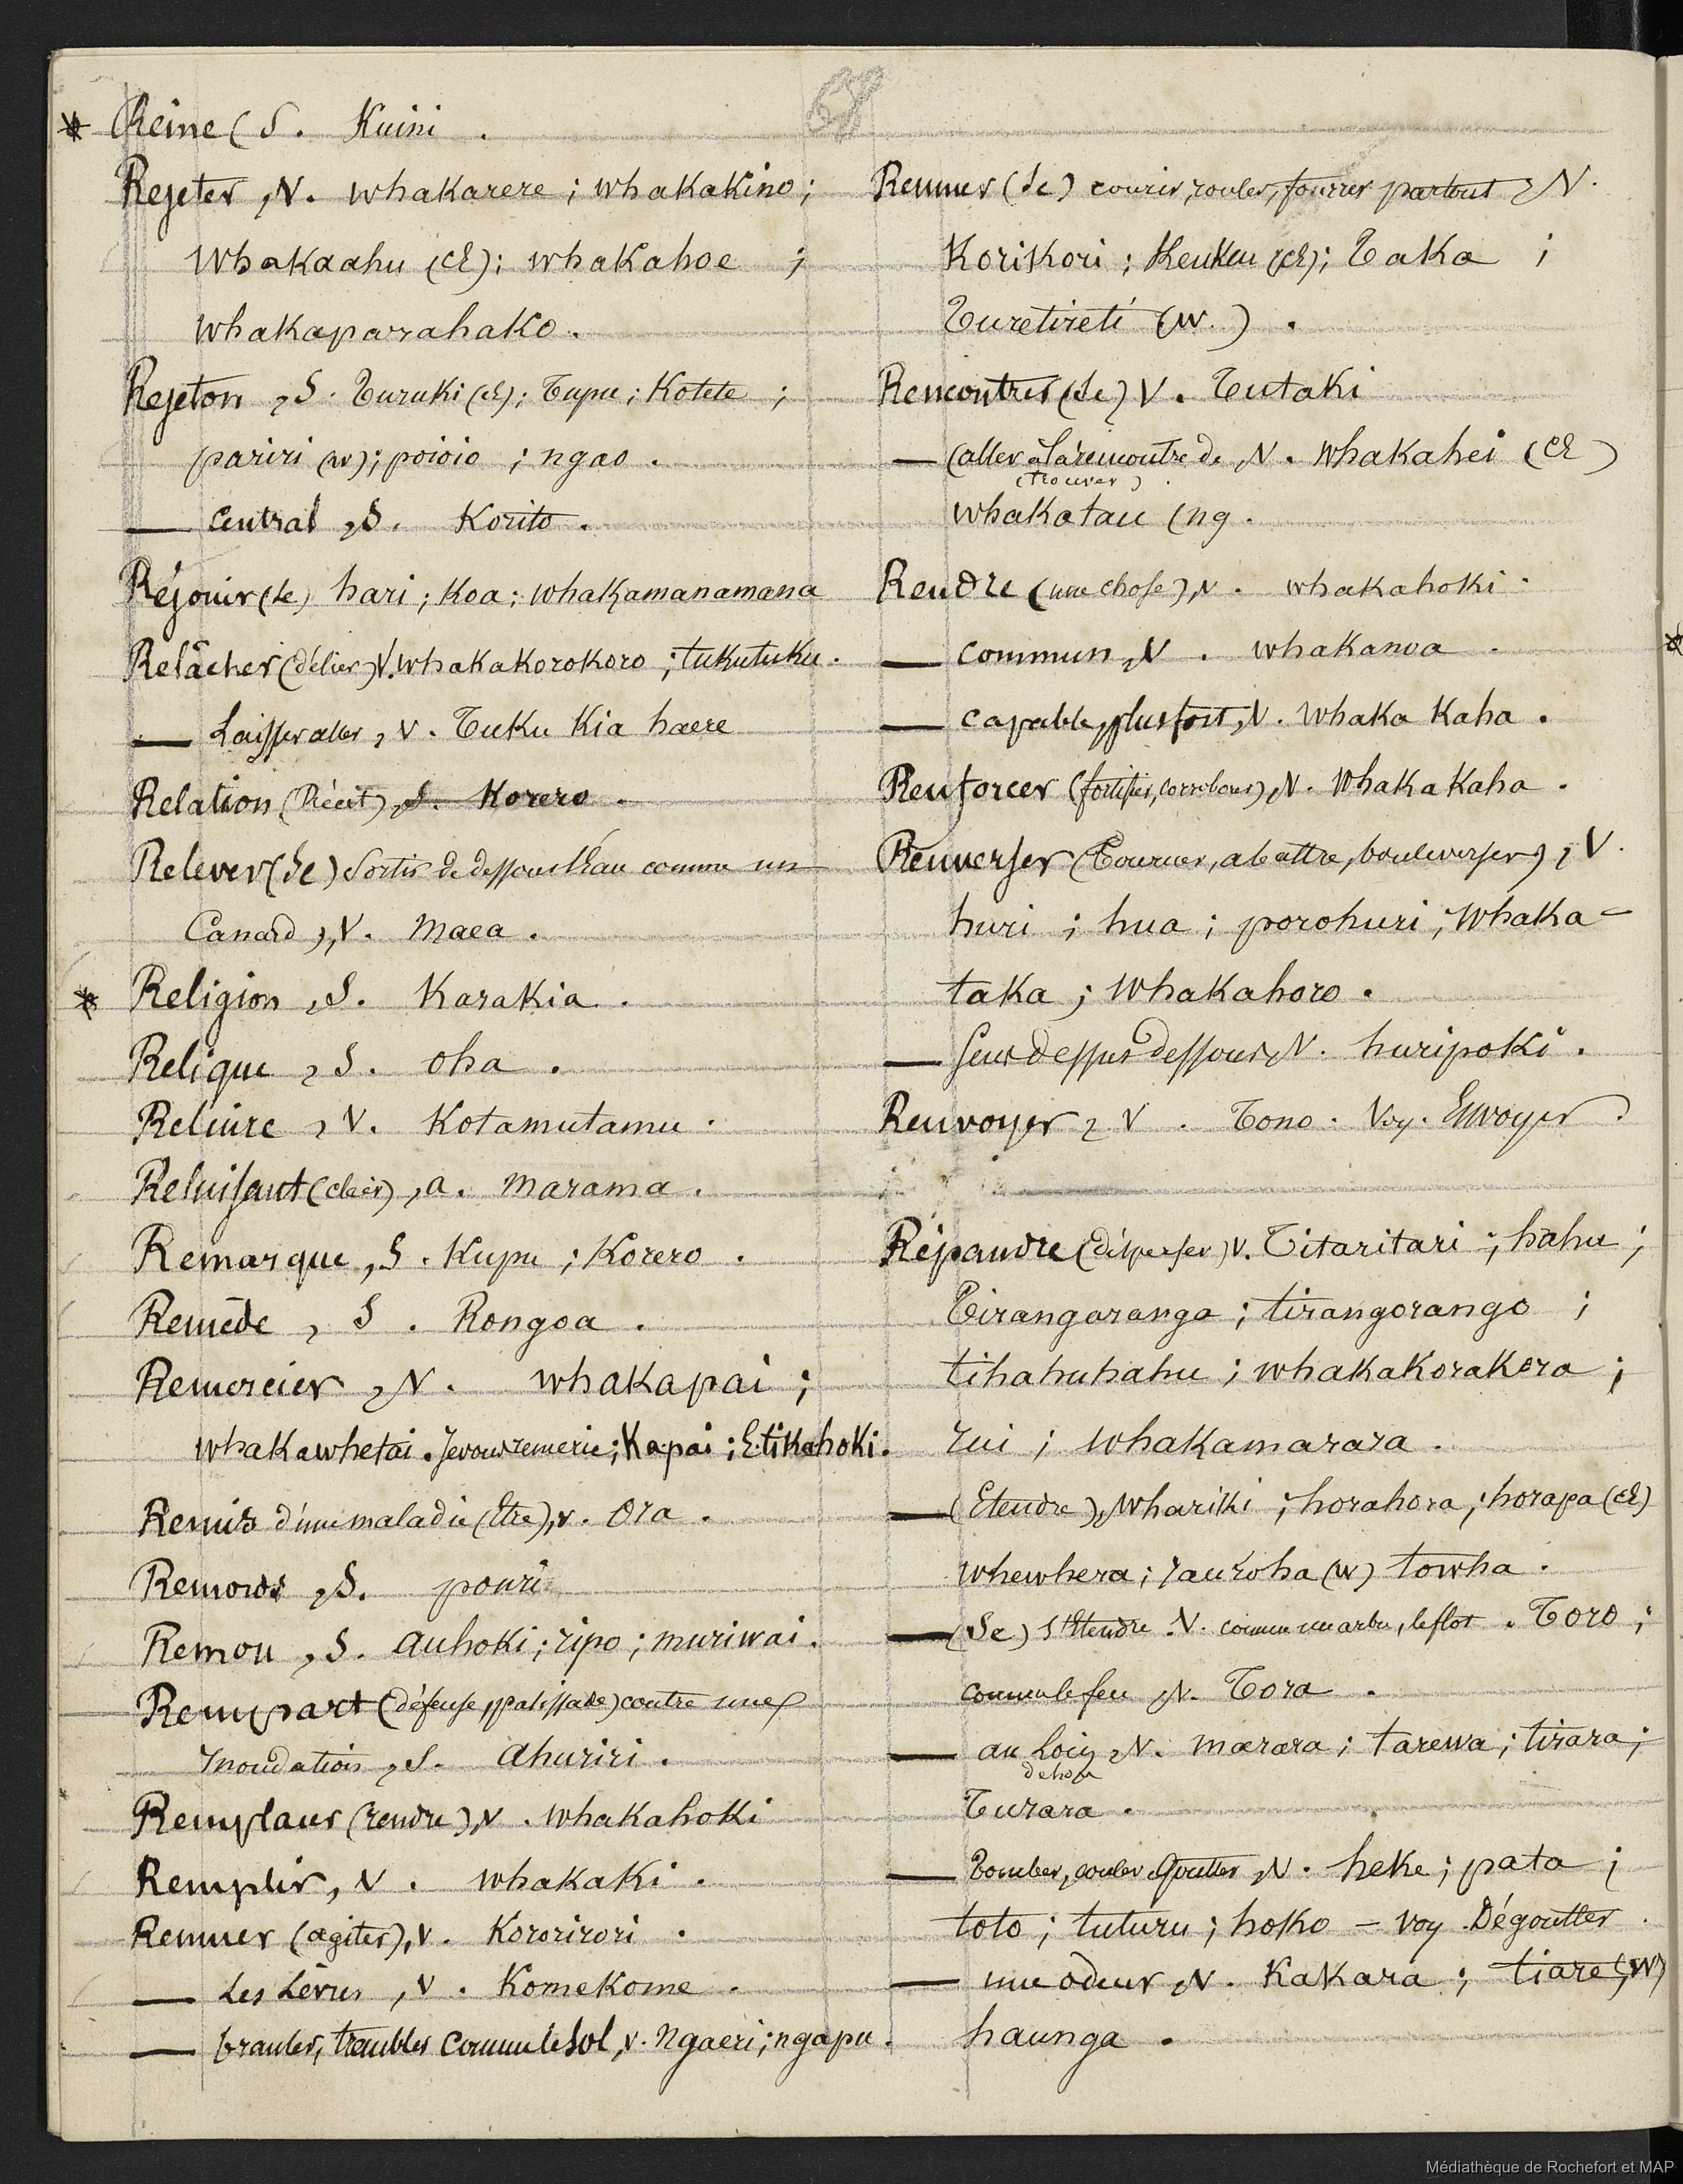 68
* Reine (S. Kuini.
Rejeter, V. whakarere; whakakino;
whakaahu (E); whakahoe;
whakaparahako.
Rejeton, S. Turuki (E); Tupu; Kotete;
pariri (w); poioio; ngao.
— Central, S. Korito.
Réjouir (se) hari; Koa; whakamanamana
Relâcher (délier) V. whakakorokoro; tukutuku.
— Laisser aller, V. Tuku Kia haere
Relation (Récit), S. Korero.
Relever (Se) Sortir de dessous l'Eau comme un
Canard, V. Maea.
* Religion, S. Karakia.
Relique, S. oha.
Reluire, V. Kotamutamu.
Reluisant (clair), a. marama.
Remarque, S. Kupu; Korero.
Remède, S. Rongoa.
Remercier, V. whakapai;
whakawhetai. Je vous remercie; Kapai; E tika hoki.
Remis d'une maladie (Etre), v. Ora.
Remords, S. pouri
Remou, S. Auhoki; ripo; muriwai.
Rempart (défense, palissade) contre une
Inondation, S. Ahuriri.
Remplacer (rendre), V. whakahoki
Remplir, V. whakaki.
Remuer (agiter), V. Kororirori.
— Les Lèvres, V. Komekome.
— branler, trembler comme le sol, v. Ngaeri; ngapu.
Remuer (Se) courir, rouler, fourrer partout, V.
Korikori; Keukeu (E); Taka;
Turetireti (w.).
Rencontrer (Se) V. Tutaki
— (aller à la rencontre de, V. whakahei (E)
(trouver)
whakatau (ng.
Rendre (une chose), V. whakahoki.
— commun, V. whakanoa.
— capable, plus fort, V. whaka Kaha.
Renforcer (fortifier, corroborer), V. whaka Kaha.
Renverser (Tourner, abattre, bouleverser), V.
huri; hua; porohuri; whaka-
taka; whakahoro.
— sens dessus dessous, V. huripoki.
Renvoyer, V. Tono. Voy. Envoyer.
Répandre (disperser) V. Titaritari; hahu;
Tirangaranga; tirangorango;
tihahuhahu; whakakorakora;
rui; whakamarara.
— (Etendre), whariki; horahora; horapa (E)
whewhera; raukoha (w) towha.
— (Se) s'Etendre. V. comme un arbre, le flot. Toro;
comme le feu, V. Tora.
— au Loin, V. marara; tarewa; tirara;
dehors
Turara.
— Tomber, couler Goutter, V. heke; pata;
toto; tuturu; hoko - voy. Dégoutter.
— une odeur, V. Kakara; tiare (w)
haunga.
Médiathèque de Rochefort et MAP